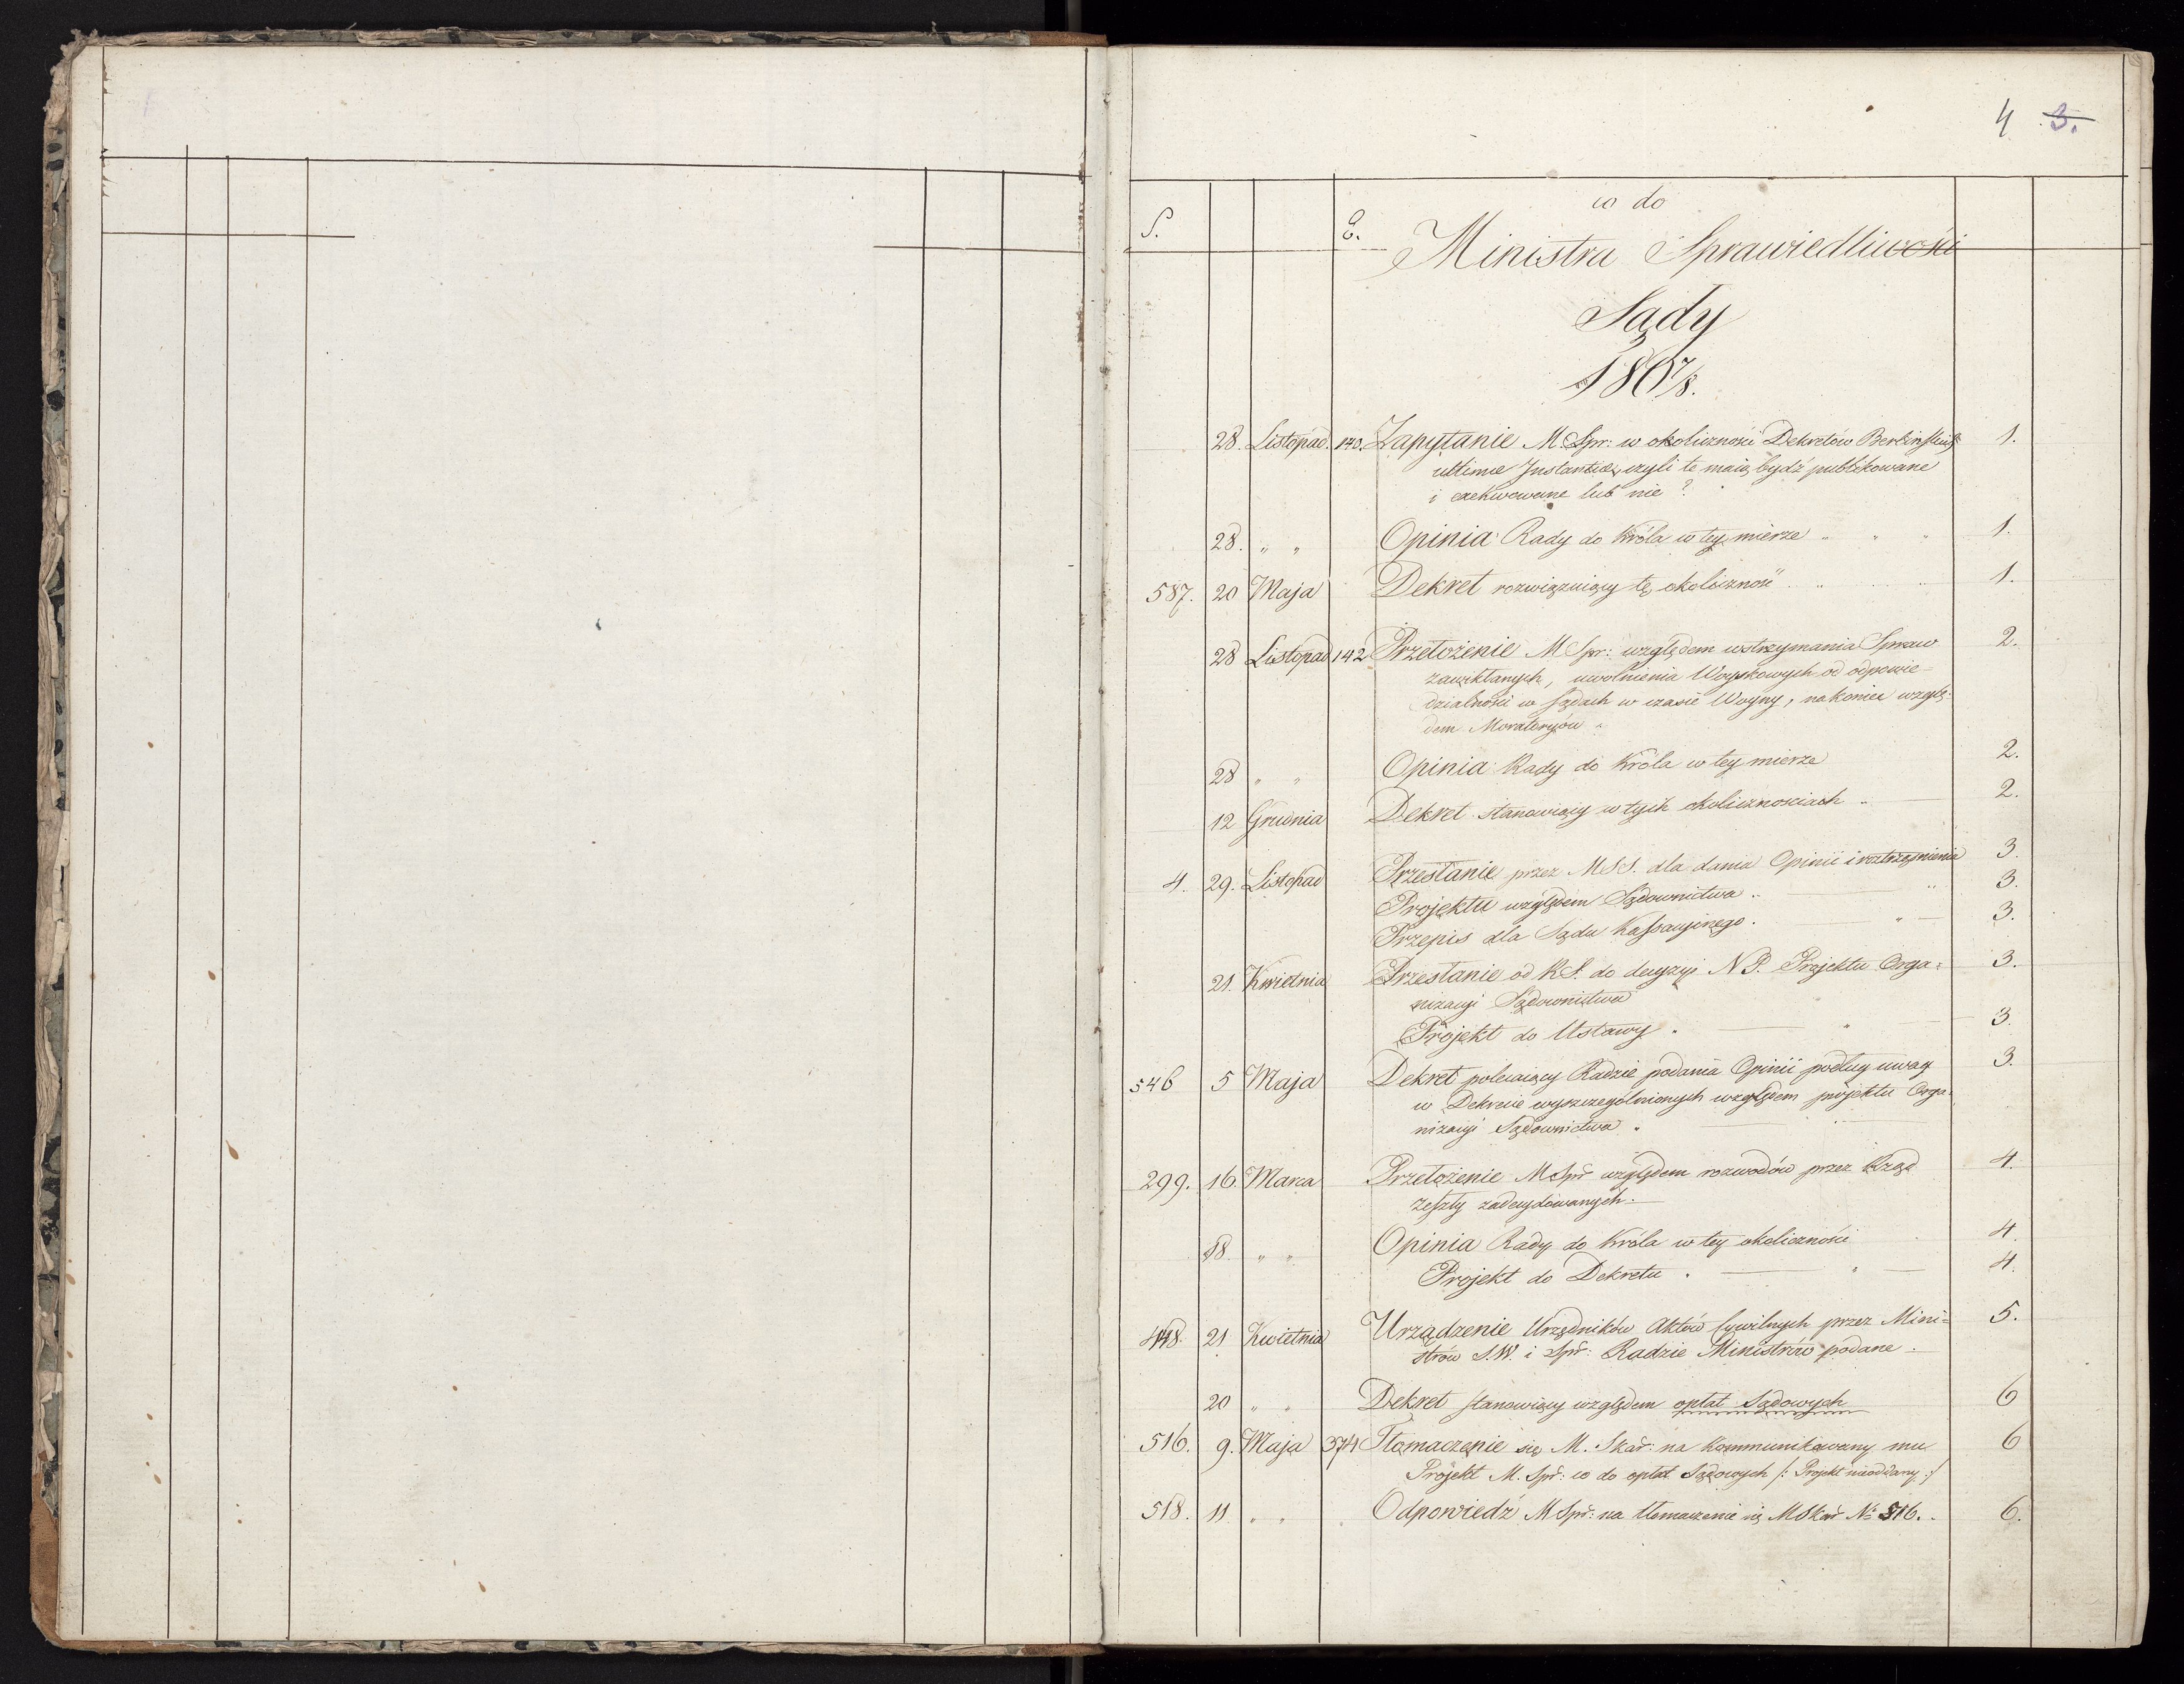 4 3.
co do
S. E. Ministra Sprawiedliwości
Sądy
1807/8.
28. Listopad. 140. Zapytanie M. Spr: w okoliczności Dekretów Berlinskich 1.
ultimae Instantiae, czyli te maią bydź publikowane
i exekwowane lub nie?
28. " " Opinia Rady do Króla w tey mierze " " " 1.
587. 20 Maja Dekret rozwiązuiący tę okoliczność " " 1.
28 Listopad 142 Przełożenie M Spr: względem wstrzymania Spraw 2.
zawikłanych, uwolnienia Woyskowych od odpowie=
dzialności w Sądach w czasie Woyny, nakoniec wzglę=
dem Moratoryów "
28 " " Opinia Rady do Króla w tey mierze 2.
12 Grudnia Dekret stanowiący w tych okolicznościach " 2.
4. 29. Listopad Przesłanie przez M.S.S. dla dania Opinii i roztrząśnienia 3.
Projektu względem Sądownictwa " " 3.
Przepis dla Sądu Kassacyjnego. " 3.
21. Kwietnia Przesłanie od R.S. do decyzyi N.P. Projektu Orga= 3.
nizacyi Sądownictwa
Projekt do Ustawy " " 3.
546 5 Maja Dekret polecaiący Radzie podania Opinii podług uwag 3.
w Dekrecie wyszczególnionych względem projektu Orga=
nizacyi Sądownictwa "
299. 16. Marca Przełożenie M Spr względem rozwodów przez Rząd 4.
zeszły zadecydowanych.
18. " " Opinia Rady do Króla w tey okoliczności 4.
Projekt do Dekretu " " 4.
448. 21 Kwietnia Urządzenie Urzędników Aktów Cywilnych przez Mini= 5.
strów S.W. i Spr: Radzie Ministrów podane.
20 " " Dekret stanowiący względem opłat Sądowych 6
516. 9. Maja 374 Tłomaczenie się M. Skar: na kommunikowany mu 6
Projekt M. Spr: co do opłat Sądowych /: Projekt nieoddany :/
518. 11 " " Odpowiedź M Spr: na tłomaczenie się M Skar N: 516. 6.